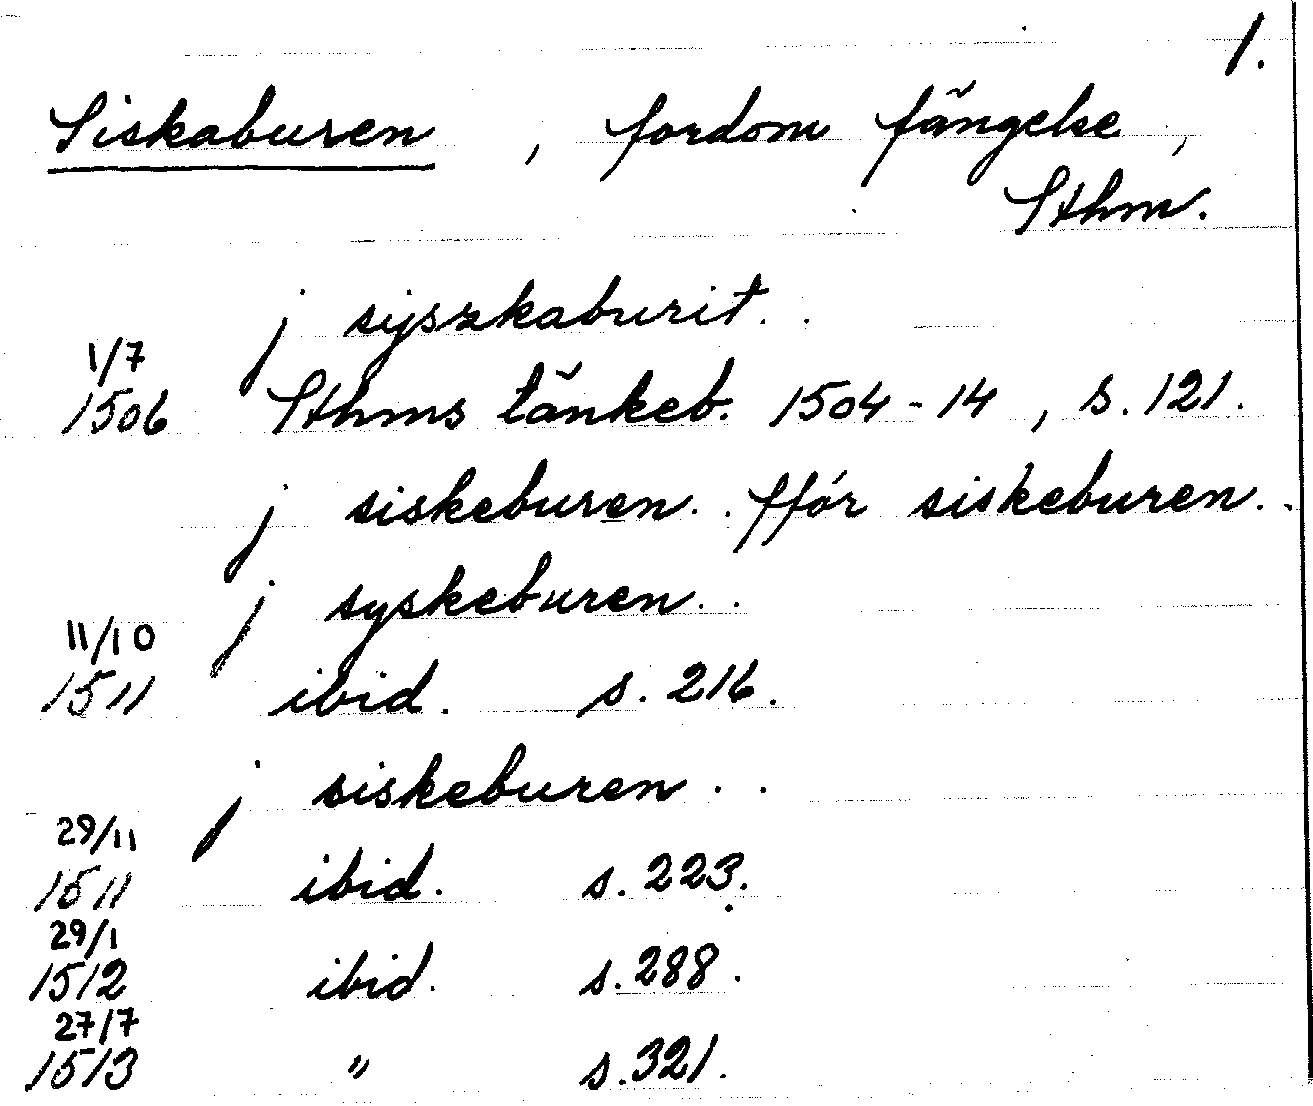 1.
Siskaburen , fordom fängelse ,
Sthm.
j syszkaburit. .
1/7
1506 Sthms tänkeb. 1504-14 , s. 121.
j siskeburen. . ffór siskeburen. .
j syskeburen. .
11/10
1511 ibid. s. 216.
j siskeburen . .
29/11
1511 ibid. s. 223.
29/1
1512 ibid. s. 288.
27/7
1513 " s. 321.